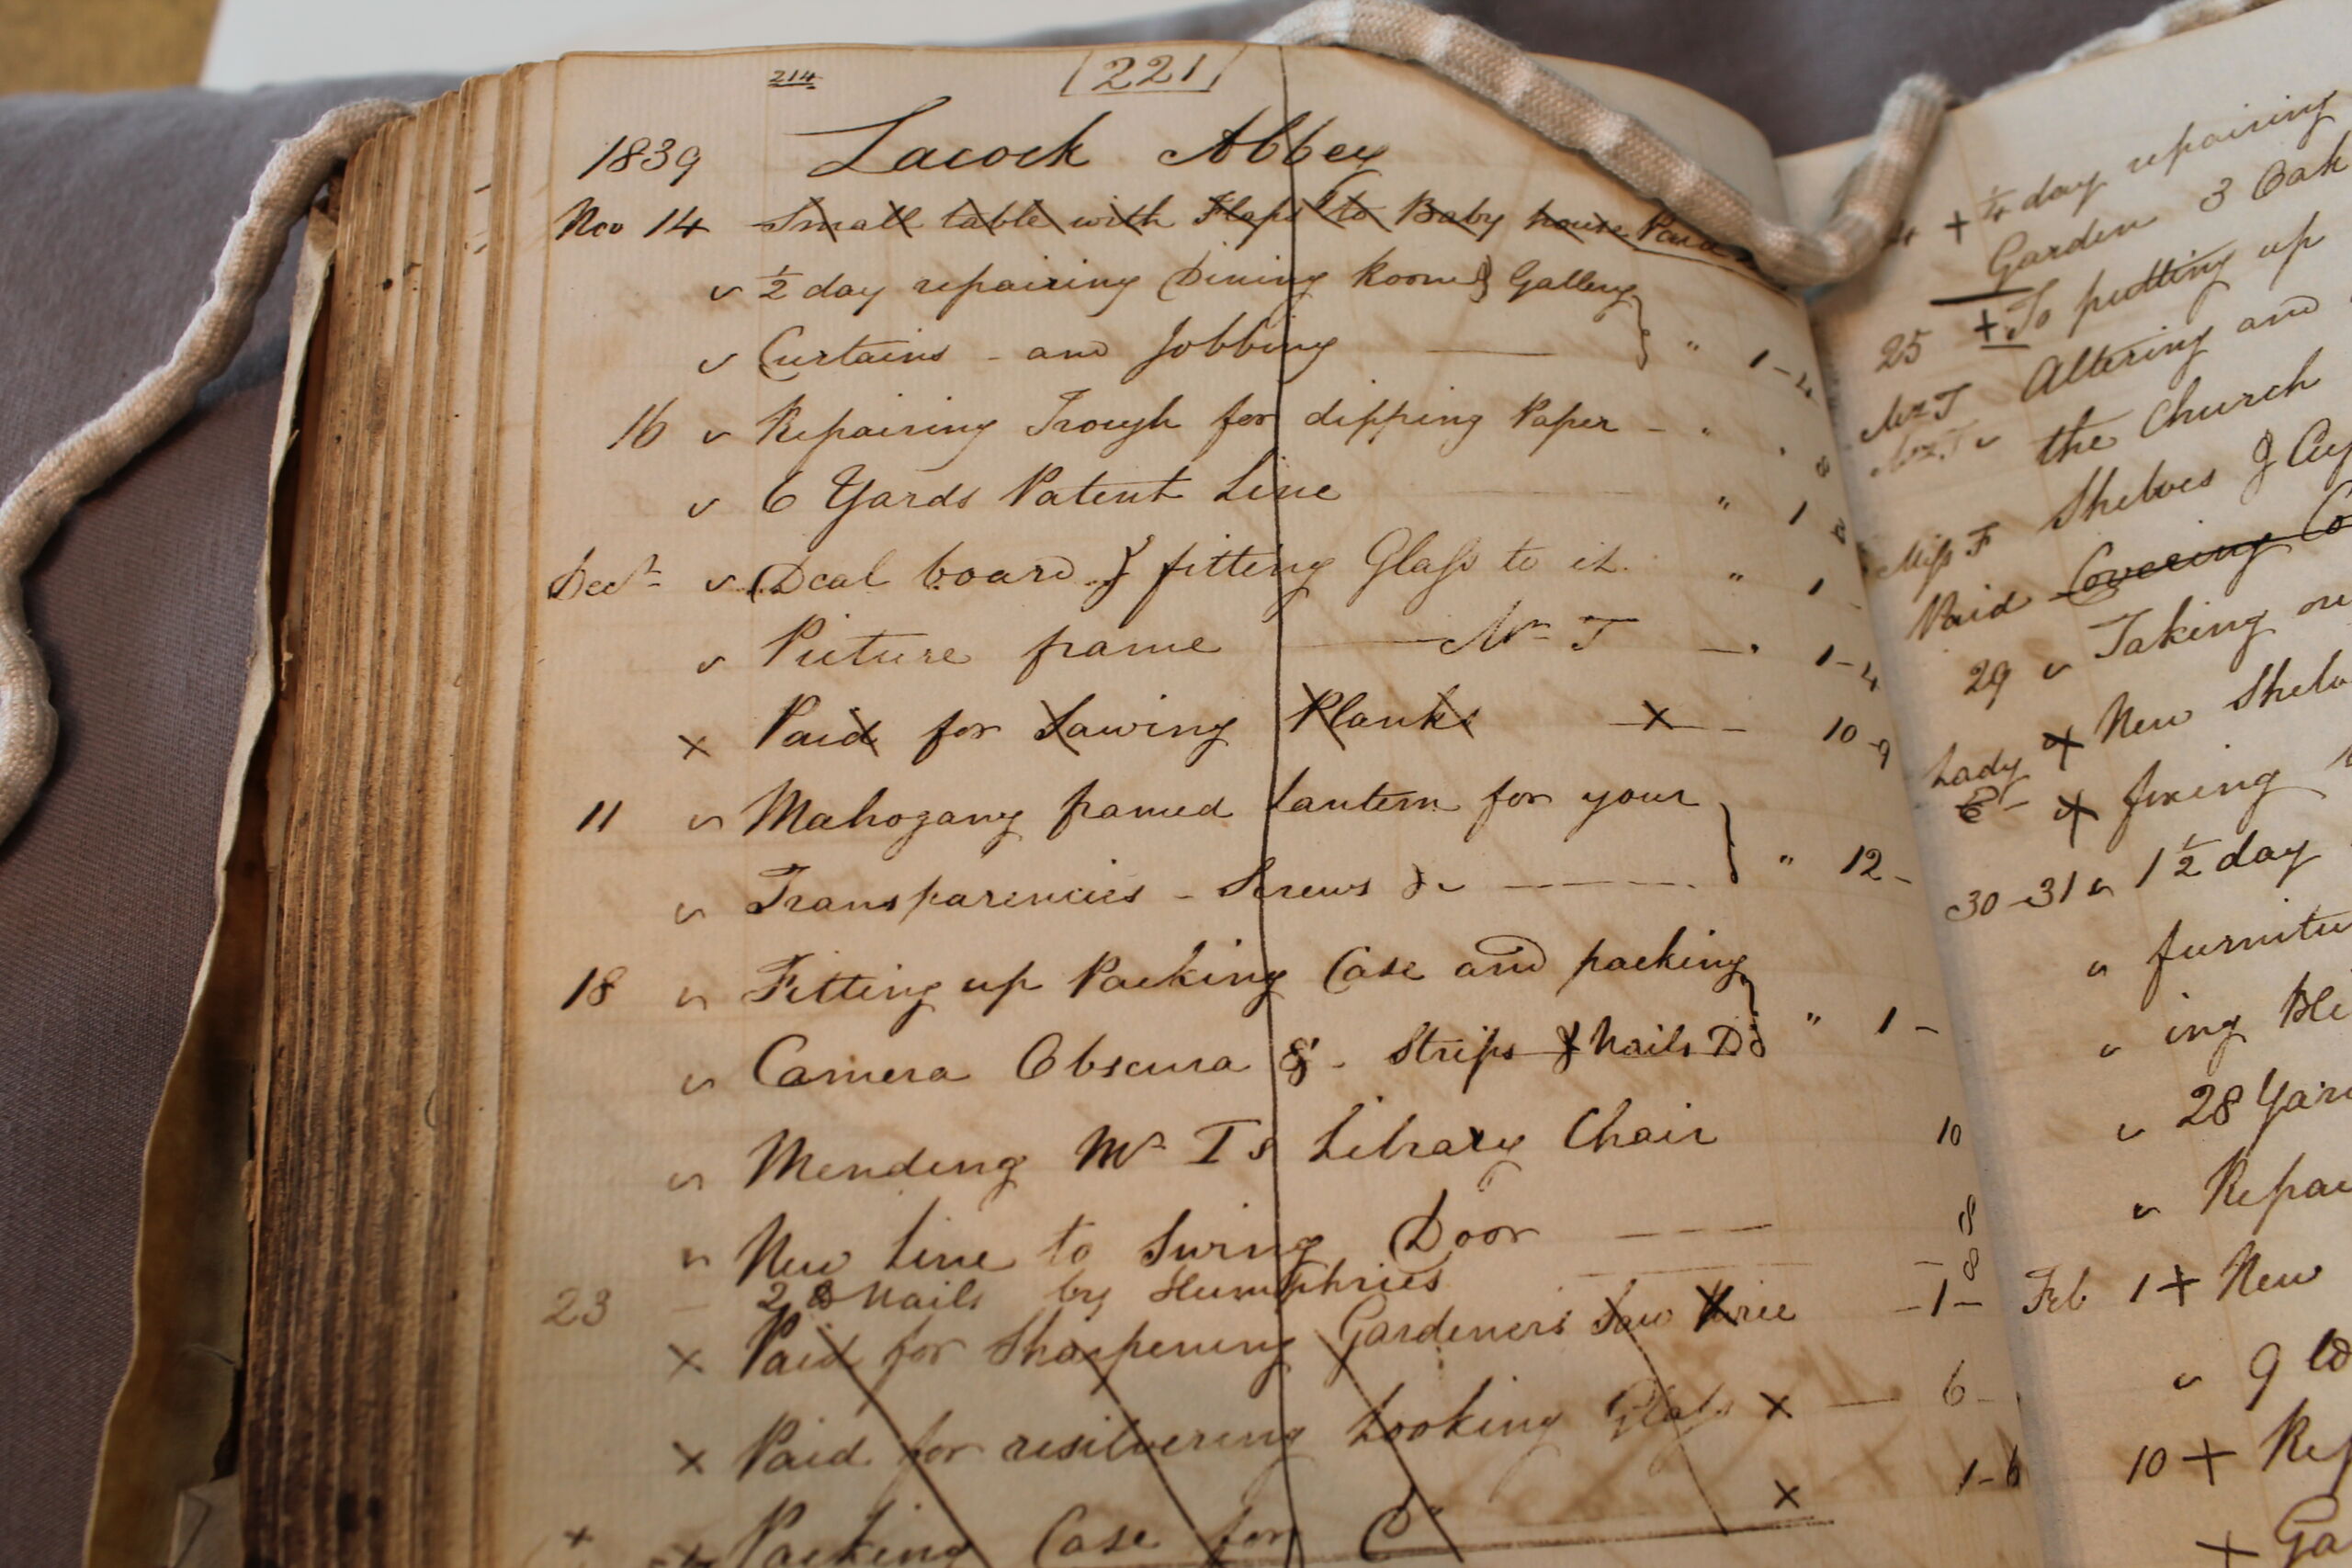 214
221
1839 Lacock Abbey
Nov 14 Small table with Flaps to Baby house Paid
½ day repairing Dining Room & Gallery
Curtains - and Jobbing " 1-4
16 Repairing Trough for dipping Paper - " . 8
6 Yards Patent Line " 1
Decr Deal board & fitting Glass to it. " 1 -
Picture frame Mr T 1-4
x Paid for Sawing Planks x - 10-9
11 Mahogany framed Lantern for your
Transparencies - Screws &c " 12 -
18 Fitting up Packing Case and packing
Camera Obscura & - Strips & Nails Do " 1 -
Mending Mr Ts Library Chair 10
New Line to Swing Door 8
23 Nails by Humphries - 8
x Paid for Sharpening Gardeners Saw -1-
x Paid for resilvering Looking Glass x 6 -
x 1-6
Packing Case for Do
+ ¼ day repairing
Garden 3 Oak
25 + To putting up
Mr T Altering and
Mr T the Church
Miss F Shelves &
Paid Covering
29 Taking
Lady x New
E x fixing
30-31 1 ½ day
ing
28
Feb 1 + New
9
10 +
+